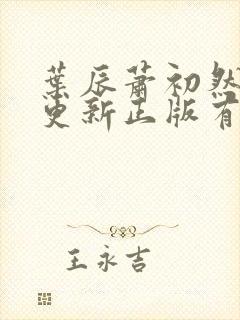 葉辰蕭初然
更新正版有
王永吉